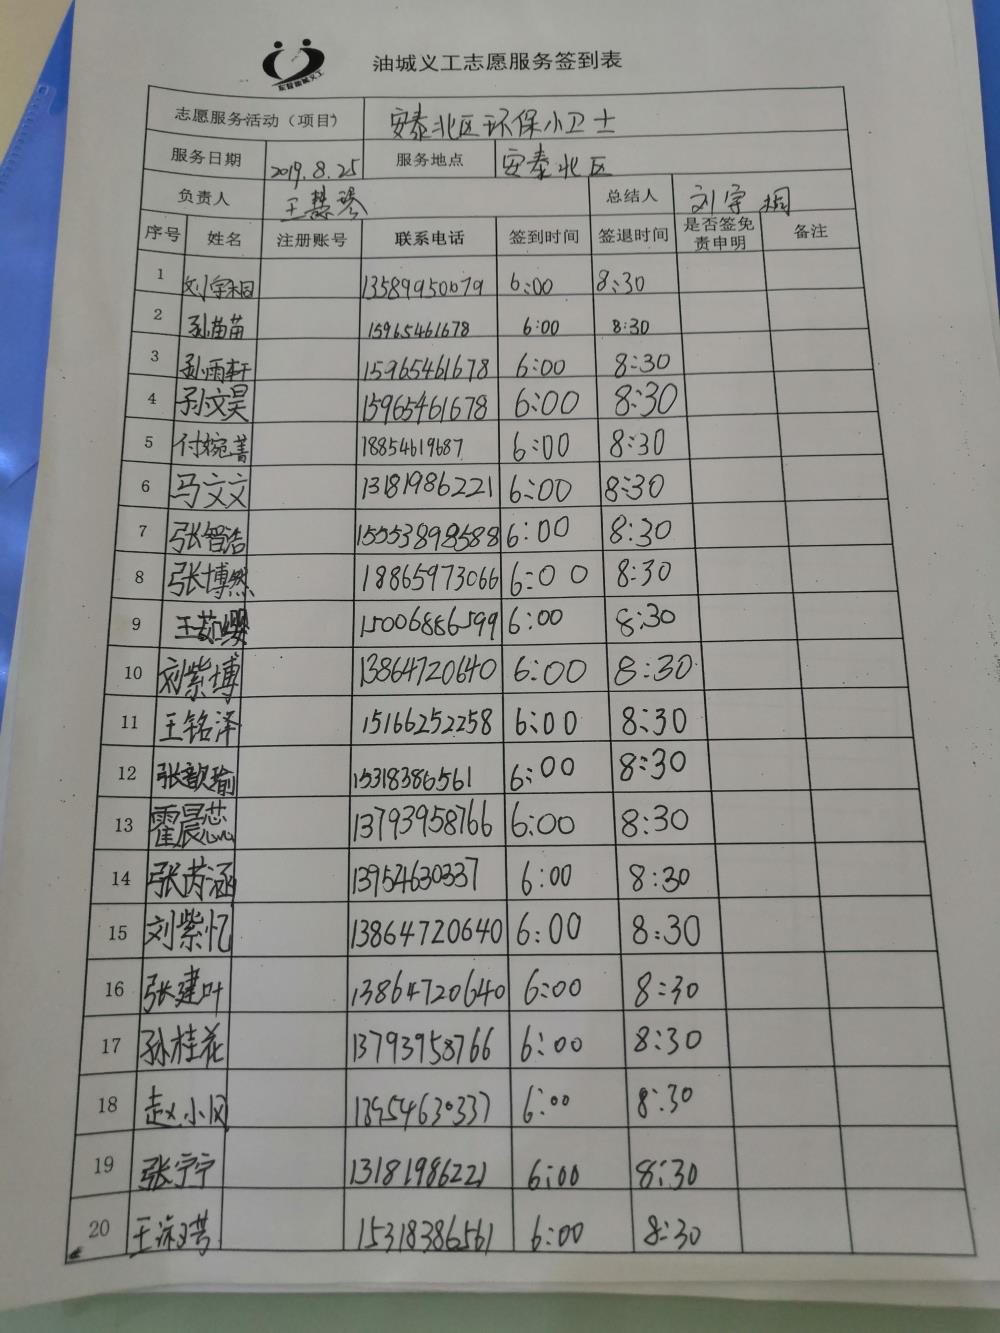 油城义工志愿服务签到表
东营油城义工
志愿服务活动（项目） 安泰北区环保小卫士
服务日期 2019.8.25 服务地点 安泰北区
负责人 王慧琴 总结人 刘宇桐
序号 姓名 注册账号 联系电话 签到时间 签退时间 是否签免责申明 备注
1 刘宇桐 13589950079 6:00 8:30
2 孙苗苗 15965461678 6:00 8:30
3 孙雨轩 15965461678 6:00 8:30
4 孙文昊 15965461678 6:00 8:30
5 付婉菁 18854619687 6:00 8:30
6 马文文 13181986221 6:00 8:30
7 张智浩 15553898588 6:00 8:30
8 张博然 18865973066 6:00 8:30
9 15006886599 6:00 8:30
10 刘紫博 13864720640 6:00 8:30
11 王铭泽 15166252258 6:00 8:30
12 张歆瑜 15318386561 6:00 8:30
13 霍晨芯 13793958766 6:00 8:30
14 张芮涵 13954630337 6:00 8:30
15 刘紫忆 13864720640 6:00 8:30
16 张建叶 13864720640 6:00 8:30
17 孙桂花 13793958766 6:00 8:30
18 赵小风 13954630337 6:00 8:30
19 张宁宁 13181986221 6:00 8:30
20 15318386561 6:00 8:30